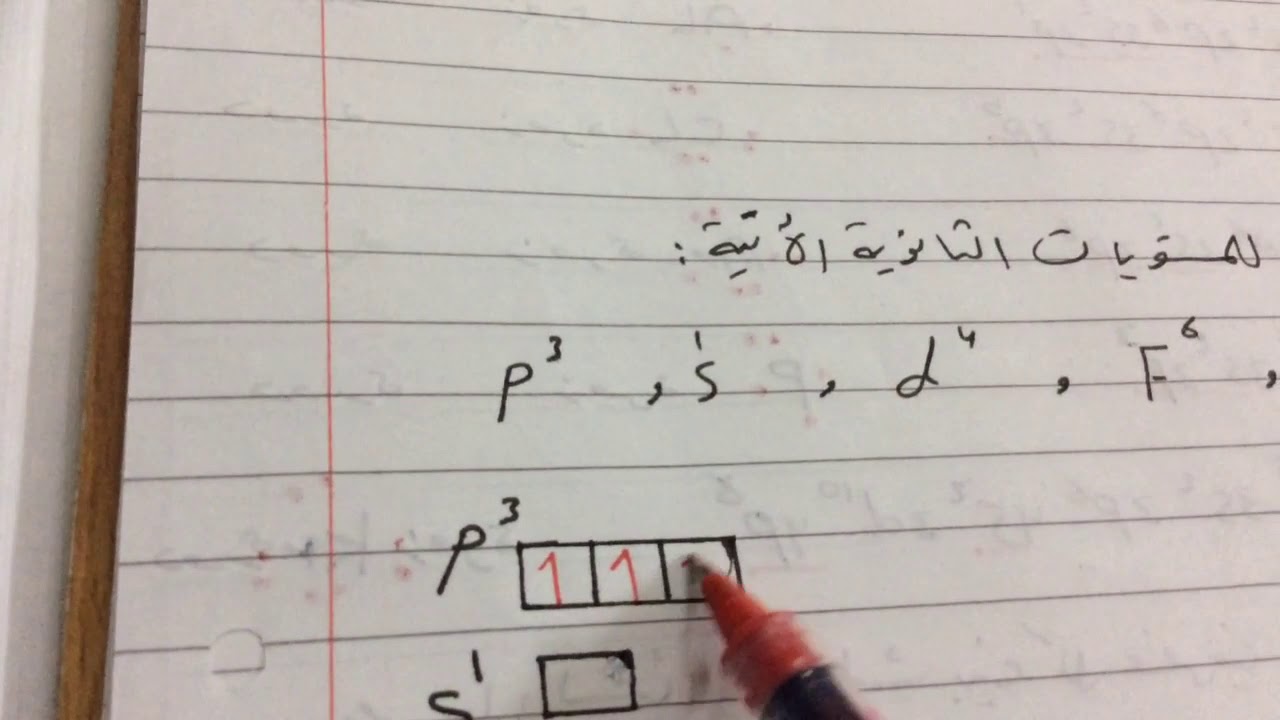 للمستويات الثانوية الأتية :
p³ , s¹ , d⁴ , F⁶ ,
p³ 1 1 1
s¹